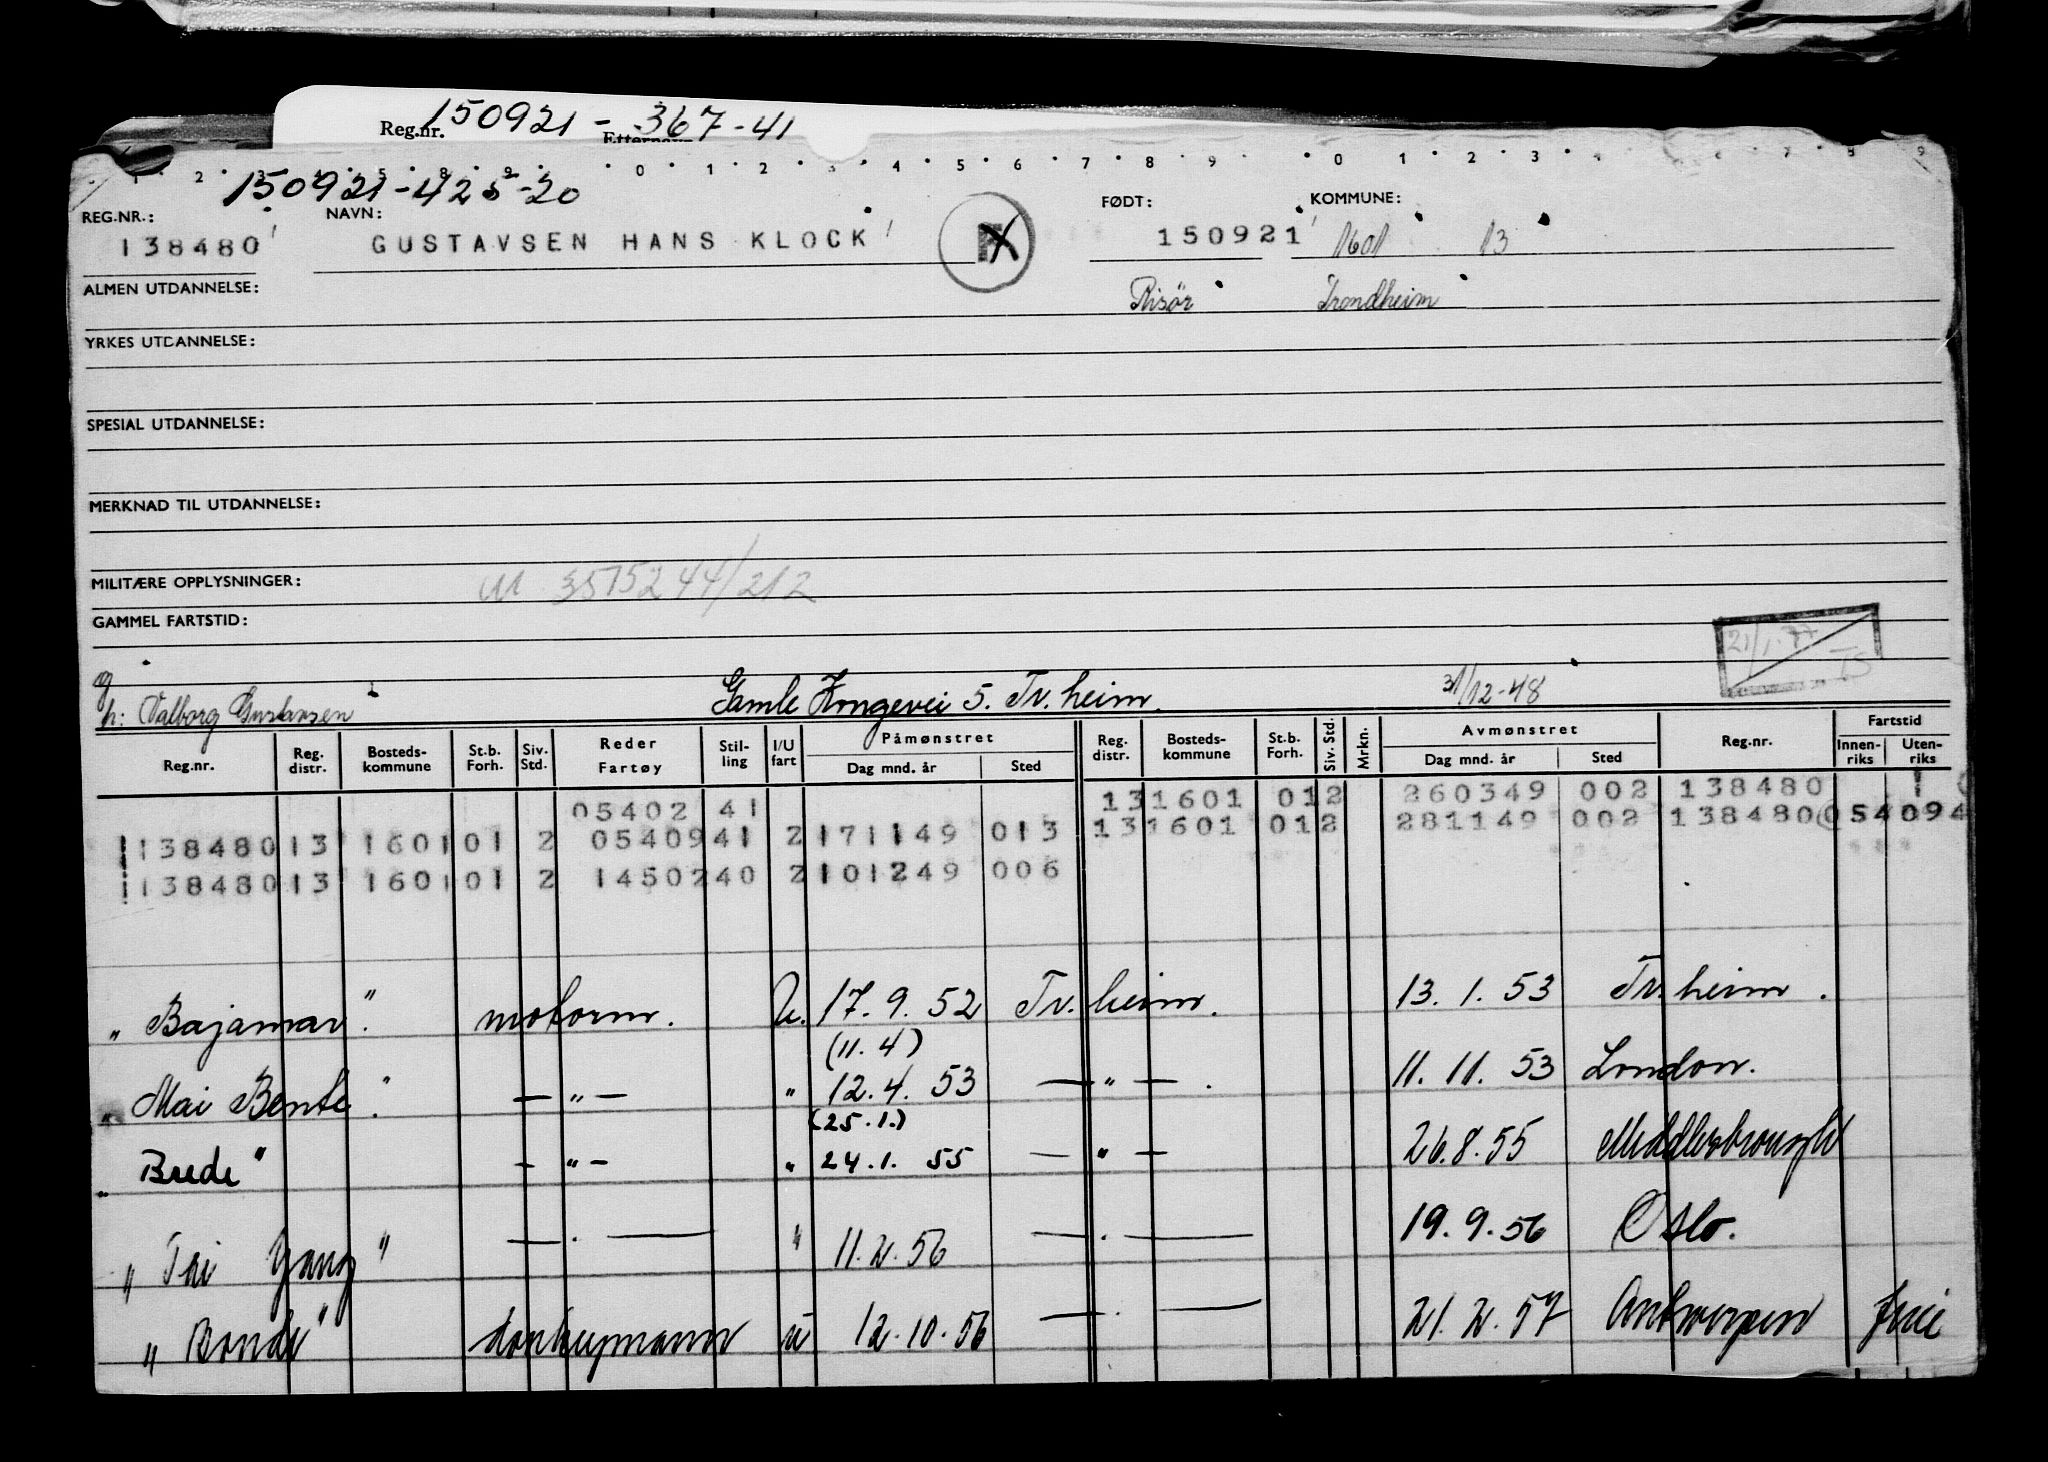 Reg.nr. 150921 - 367-41
Etternavn
1 2 3 4 5 8 9 0 1 2 3 4 5 6 7 8 9 0 1 2 3 4 6 7 8 9
150921-425-20
REG.NR.: NAVN: FØDT: KOMMUNE:
138480 GUSTAVSEN HANS KLOCK 150921 1601 13
ALMEN UTDANNELSE: Risör Trondheim
YRKES UTDANNELSE:
SPESIAL UTDANNELSE:
MERKNAD TIL UTDANNELSE:
MILITÆRE OPPLYSNINGER: M 3575244/212
GAMMEL FARTSTID:
21/1-77 TS
g
h: Valborg Gustavsen Gamle Kongevei 5. Tr.heim. 31/12-48
Reg.nr. Reg. distr. Bosteds-kommune St.b. Forh. Siv. Std. Reder Fartøy Stil-ling I/U fart Påmønstret Dag mnd. år Sted Reg. distr. Bosteds-kommune St.b. Forh. Siv. Std. Mrkn. Avmønstret Dag mnd. år Sted Reg.nr. Fartstid Innen-riks Uten-riks
05402 41 131601 012 260349 002 138480 1
138480 13 1601 01 2 05409 41 2 171149 013 131601 012 281149 002 138480 054094
138480 13 1601 01 2 14502 40 2 101249 006
" Bajamar". motorm. U. 17.9.52 Tr.heim. 13.1.53 Tr.heim.
(11.4)
" Mai Bente". — " — " 12.4.53 — " — . 11.11.53 London.
(25.1.)
" Brede" — " — " 24.1.55 — " — 26.8.55 Middlesbrough
" Tai Yang" — " — " 11.2.56 — " — 19.9.56 Oslo.
" Bonde" donkeymann u 12.10.56 — " — 21.2.57 Antwerpen frie